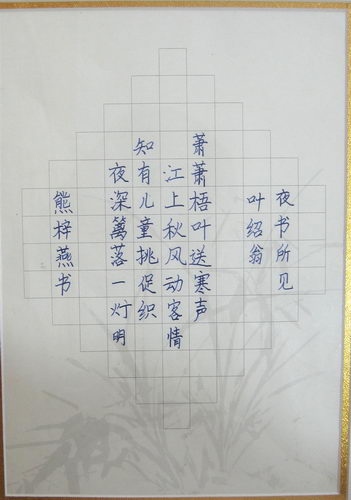 夜书所见
叶绍翁
萧萧梧叶送寒声
江上秋风动客情
知有儿童挑促织
夜深篱落一灯明
熊梓燕书